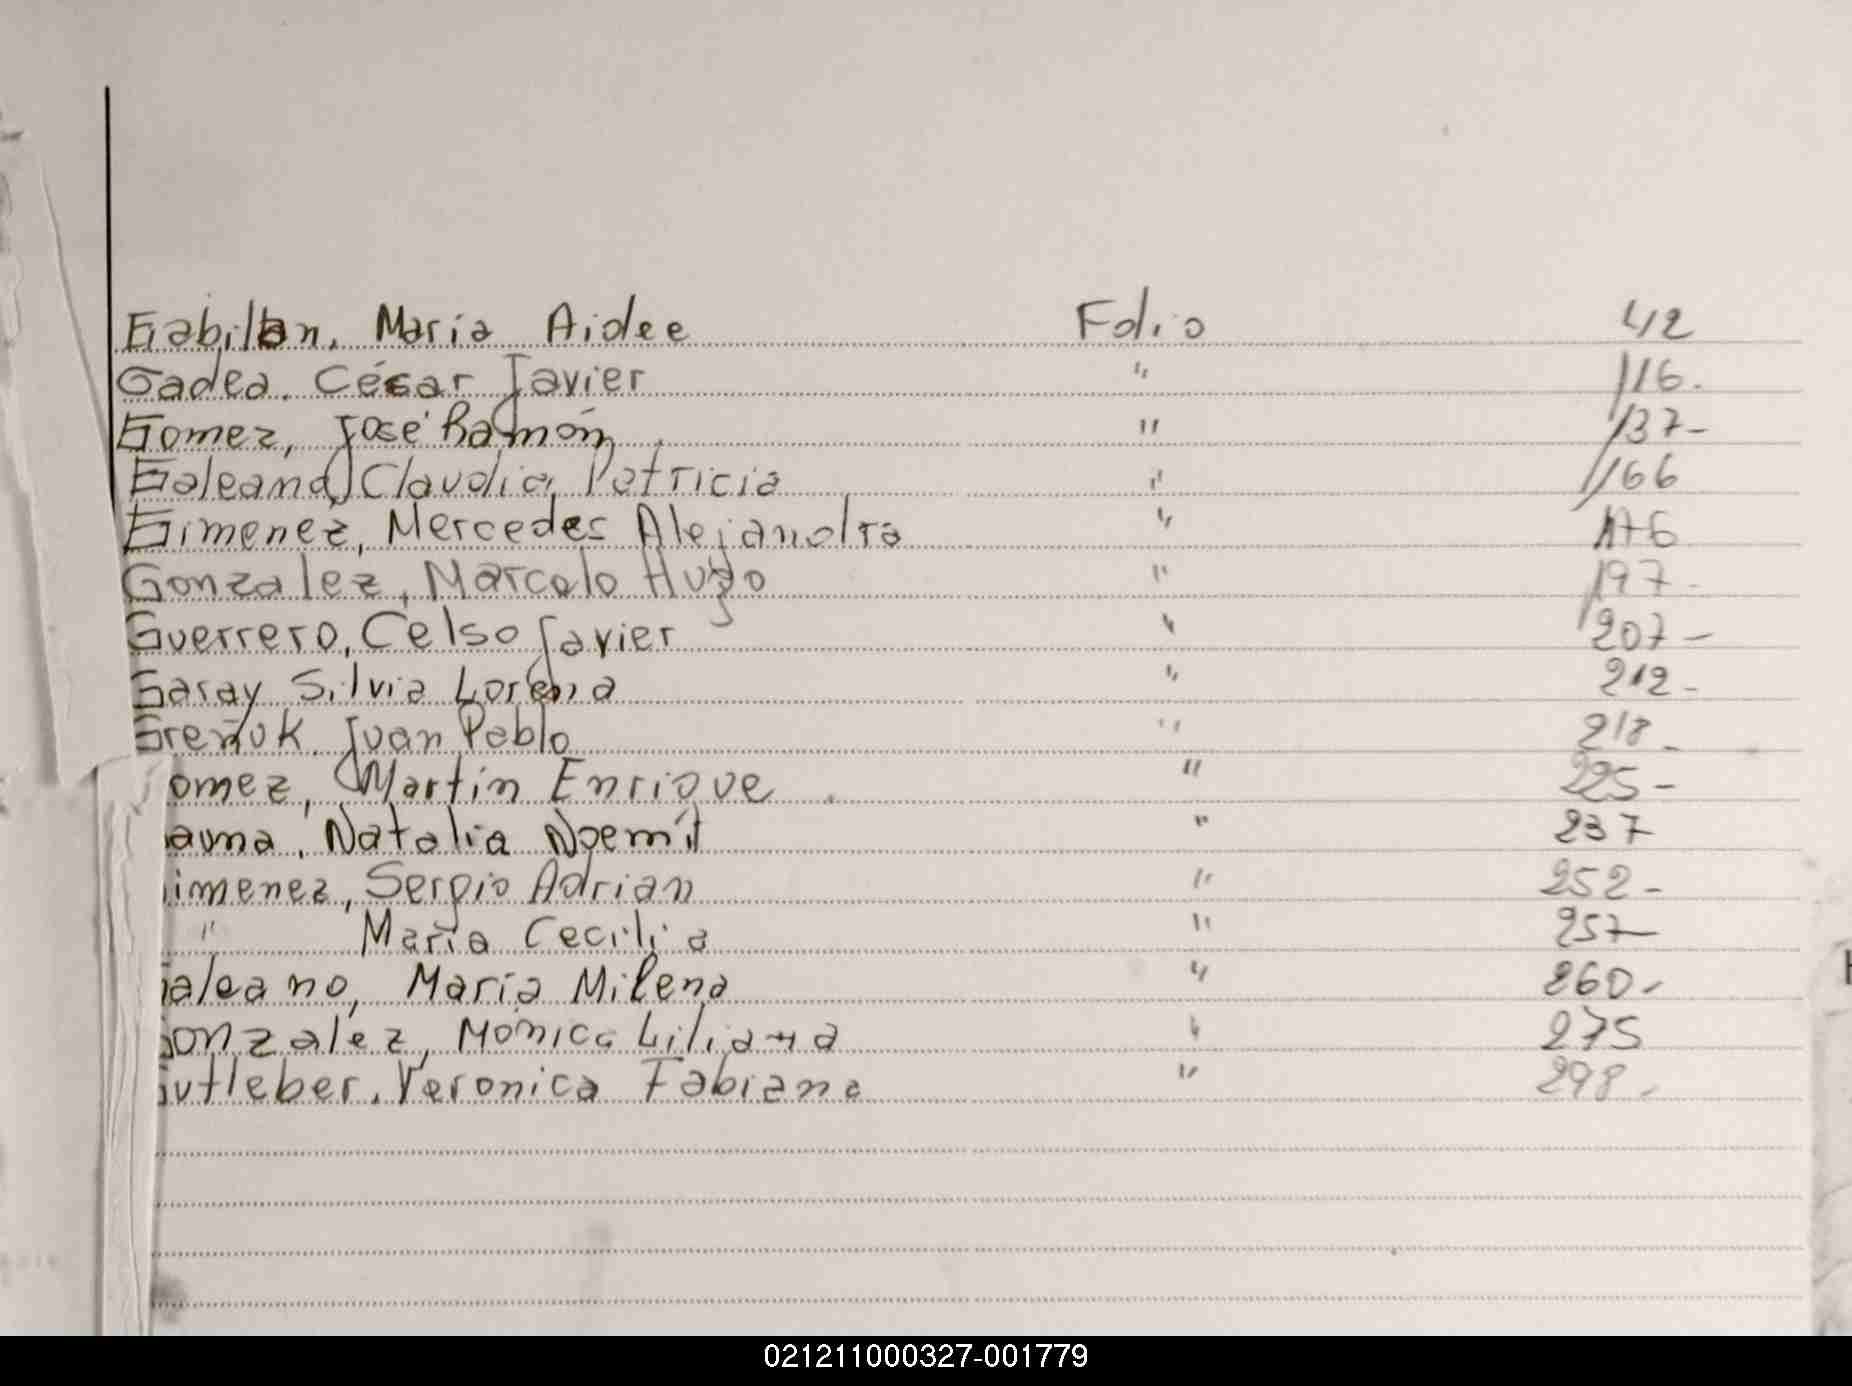 Gabilan, María Aidee Folio 42
Gadea. César Javier " 116.
Gomez, José Ramón " 137-
Galeana, Claudia Patricia " 166
Gimenez, Mercedes Alejandra " 176
Gonzalez, Marcelo Hugo " 197-
Guerrero, Celso Javier " 207-
Garay Silvia Lorena " 212-
Greñuk. Juan Pablo " 218-
omez, Martín Enrique " 225-
auna, Natalia Noemí " 237
imenez, Sergio Adrian " 252-
" María Cecilia " 257-
aleano, María Milena " 260-
Gonzalez, Mónica Liliana " 275
Gutleber. Veronica Fabiana " 298-
021211000327-001779